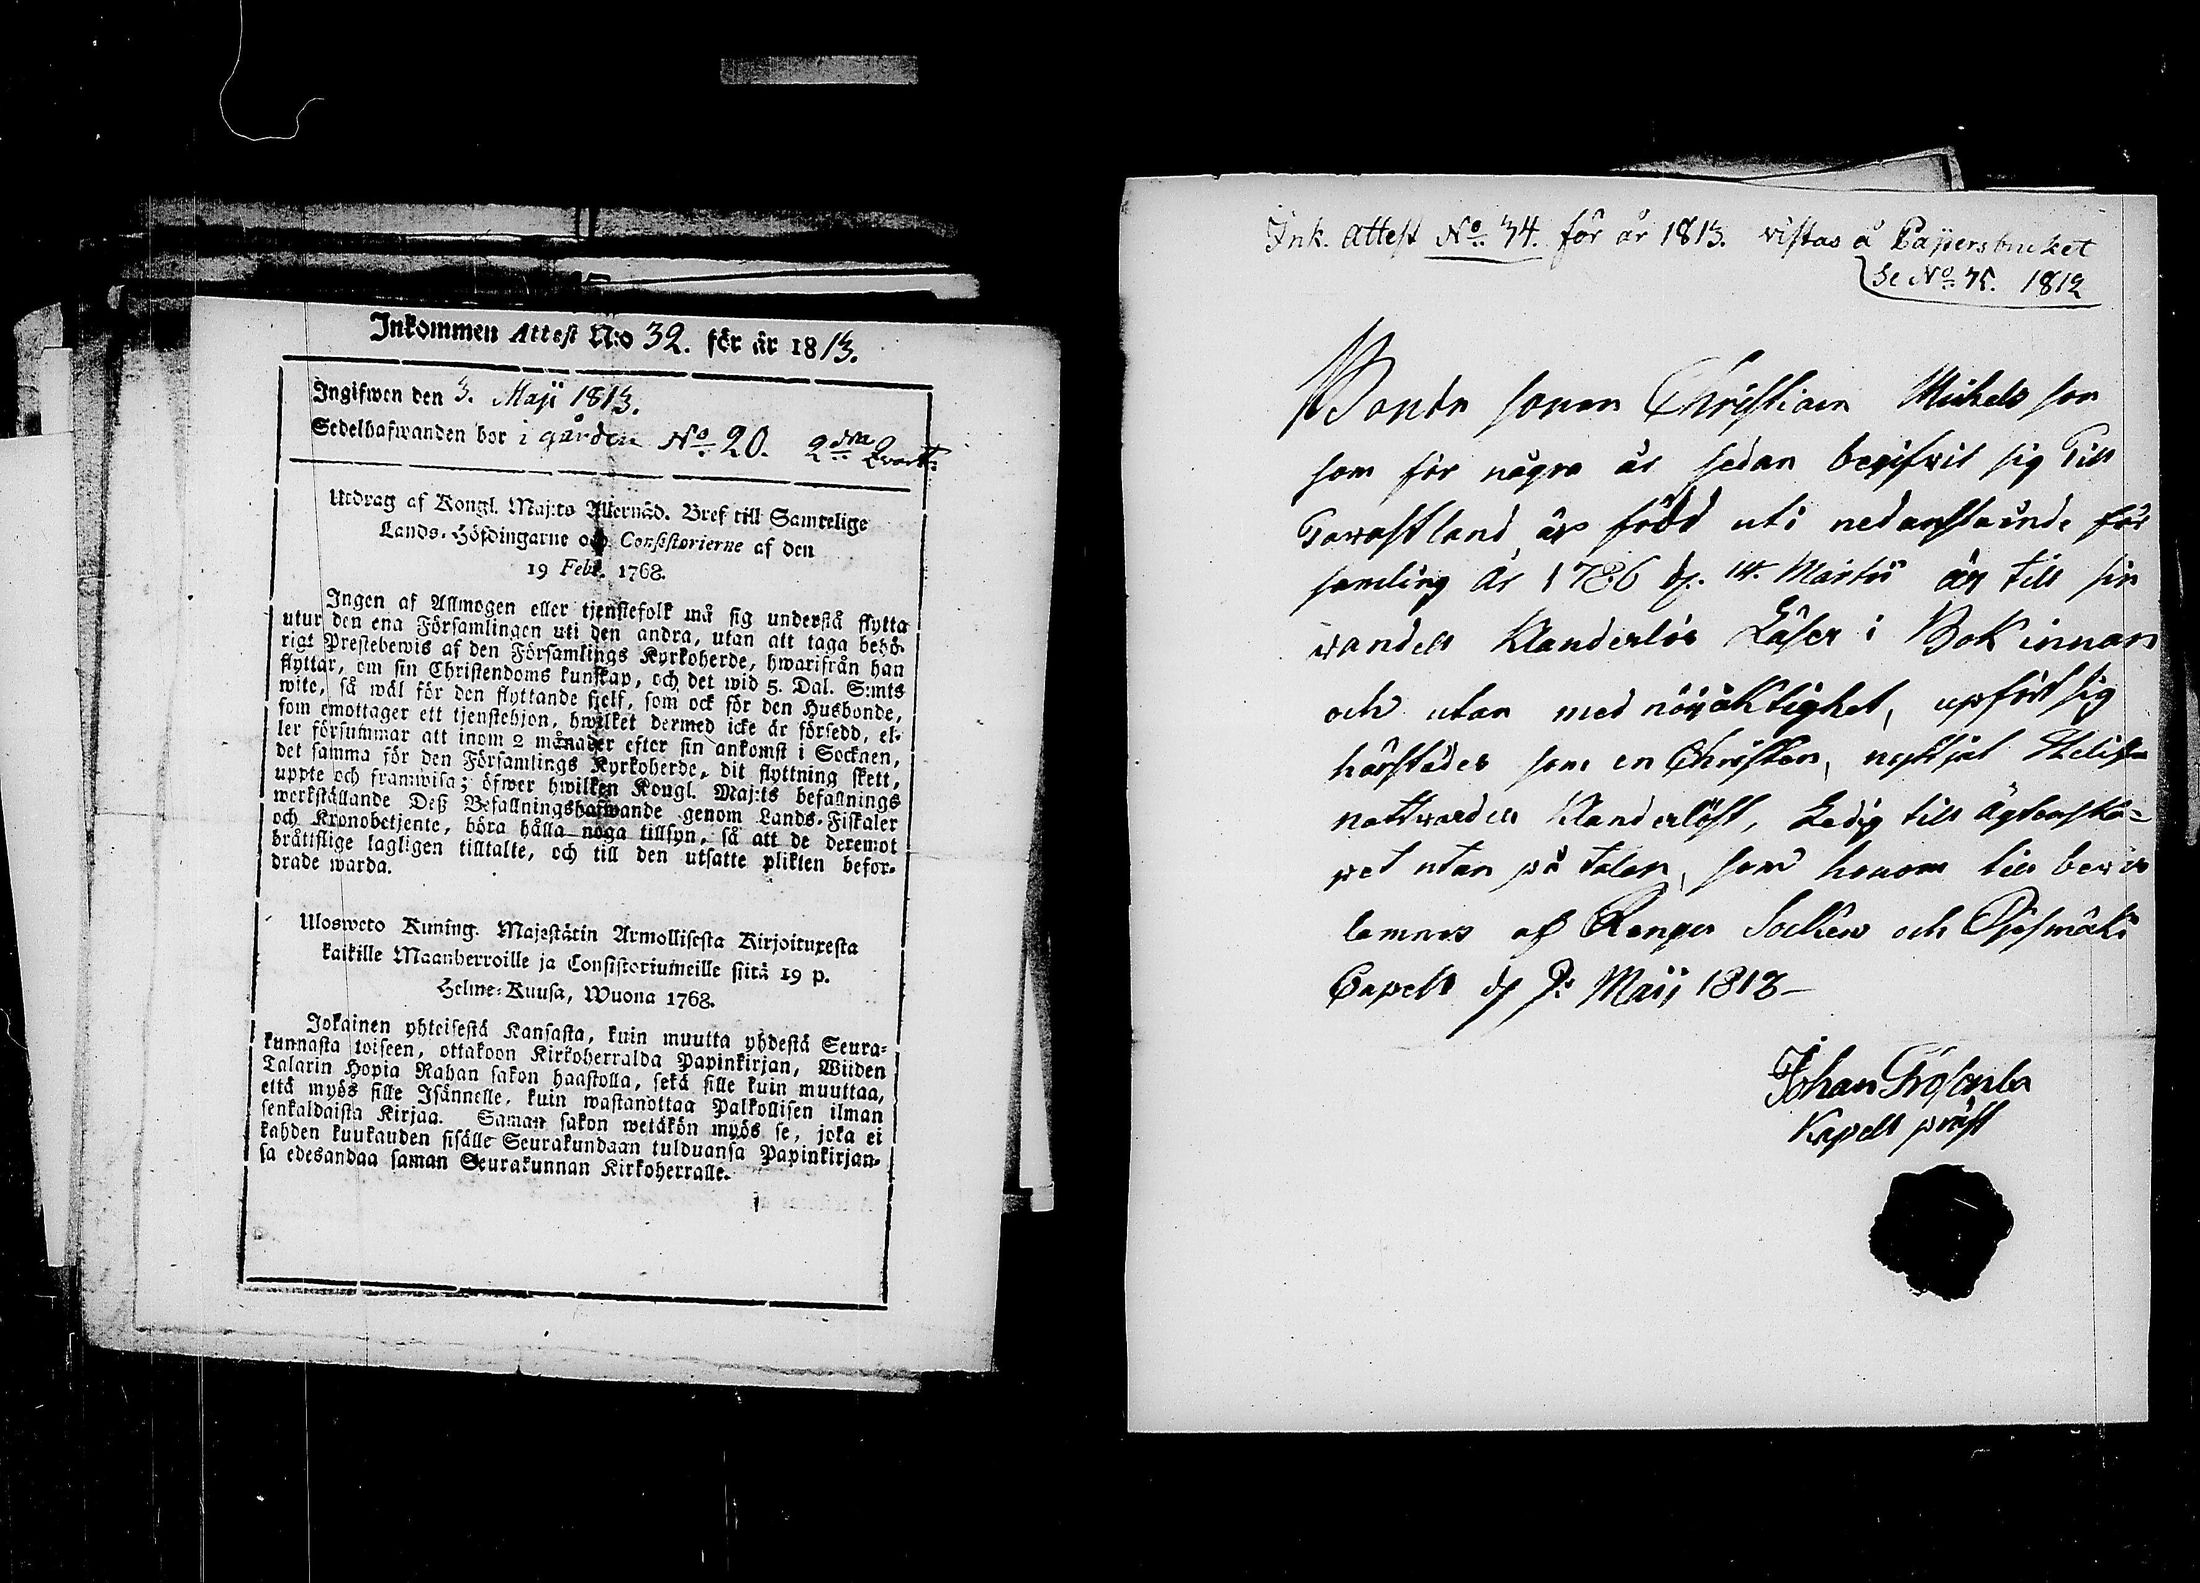 Inkommen Attest N:o 32. för år 1813.
Ingifwen den 3. Maji 1813.
Sedelhafwanden bor i gården No. 20. 2dra Qvart:
Utdrag af Kongl. Maj:ts Allernåd. Bref till Samtelige
Lands-Höfdingarne och Consistorierne af den
19 Febr. 1768.
Ingen af Allmogen eller tjenstefolk må sig understå flytta
utur den ena Församlingen uti den andra, utan att taga behö-
rigt Prestebewis af den Församlings Kyrkoherde, hwarifrån han
flyttar, om sin Christendoms kunskap, och det wid 5. Dal. S:mts
wite, så wäl för den flyttande sjelf, som ock för den Husbonde,
som emottager ett tjenstehjon, hwilket dermed icke är försedd, el-
ler försummar att inom 2 månader efter sin ankomst i Socknen,
det samma för den Församlings Kyrkoherde, dit flyttning skett,
uppte och framwisa; öfwer hwilken Kongl. Maj:ts befallnings
werkställande Deß Befallningshafwande genom Lands-Fiskaler
och Kronobetjente, böra hålla noga tillsyn, så att de deremot
bråttslige lagligen tilltalte, och till den utsatte plikten befor-
drade warda.
Ulosweto Kuning. Majestätin Armollisesta Kirjoituxesta
kaikille Maanherroille ja Consistoriumeille siitä 19 p.
Helme-Kuusa, Wuona 1768.
Jokainen yhteisestä Kansasta, kuin muutta yhdestä Seura-
kunnasta toiseen, ottakoon Kirkoherralda Papinkirjan, Wiiden
Talarin Hopia Rahan sakon haastolla, sekä sille kuin muuttaa,
että myös sille Isännelle, kuin wastanottaa Palkollisen ilman
senkaldaista Kirjaa. Saman sakon wetäkön myös se, joka ei
kahden kuukauden sisälle Seurakundaan tulduansa Papinkirjan-
sa edesandaa saman Seurakunnan Kirkoherralle.
Ink. Attest No. 34. för år 1813. vistas å Papersbruket
Se No. 1812
Bonde sonen Christian Michels son
som för några år sedan begifvit sig Till
Tawastland, är född uti nedanstående för
samling År 1786 d. 14. Martii är till sin
vandel Klanderlös Läser i Bok innan
och utan med nöijaktighet, upfört sig
härstädes som en Christen, nyttjat Heliga
nattvarden Klanderlöst, Ledig till Ägtenska-
pet utan på talan, som honom till bewis
lemnas af Socken och
Capell d Maij 1813
Johan
Kapells präst